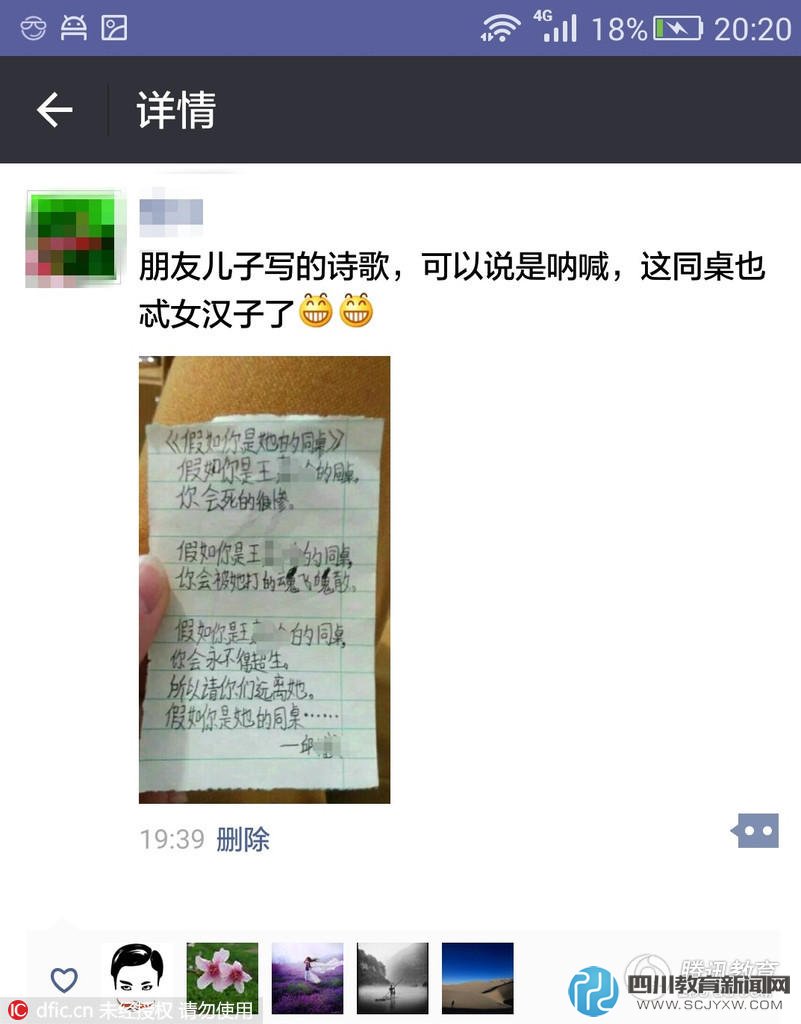 4G 18% 20:20
详情
朋友儿子写的诗歌，可以说是呐喊，这同桌也
忒女汉子了
《假如你是她的同桌》
假如你是王 的同桌，
你会死的很惨。
假如你是王 的同桌，
你会被她打的魂飞魄散。
假如你是王 的同桌，
你会永不得超生。
所以请你们远离她。
假如你是她的同桌……
—邱
19:39 删除
腾讯教育
四川教育新闻网
WWW.SCJYXW.COM
IC dfic.cn 未经授权 请勿使用